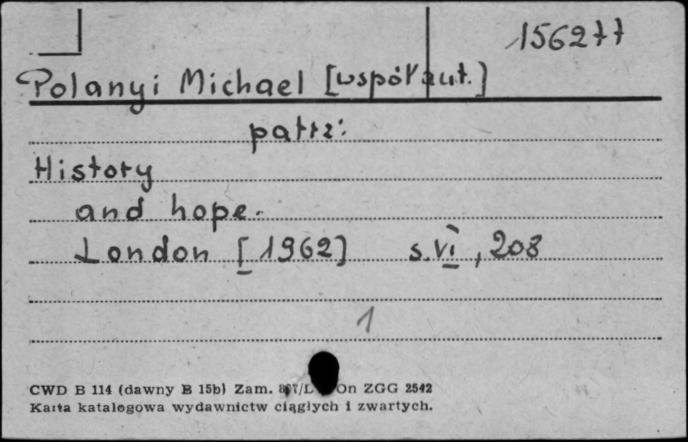 156277
Polanyi Michael [współaut.]
patrz:
History
and hope.
London [1962] s.VI, 208
1
CWD B 114 (dawny B 15b) Zam. On ZGG 2542
Karta katalogowa wydawnictw ciągłych i zwartych.